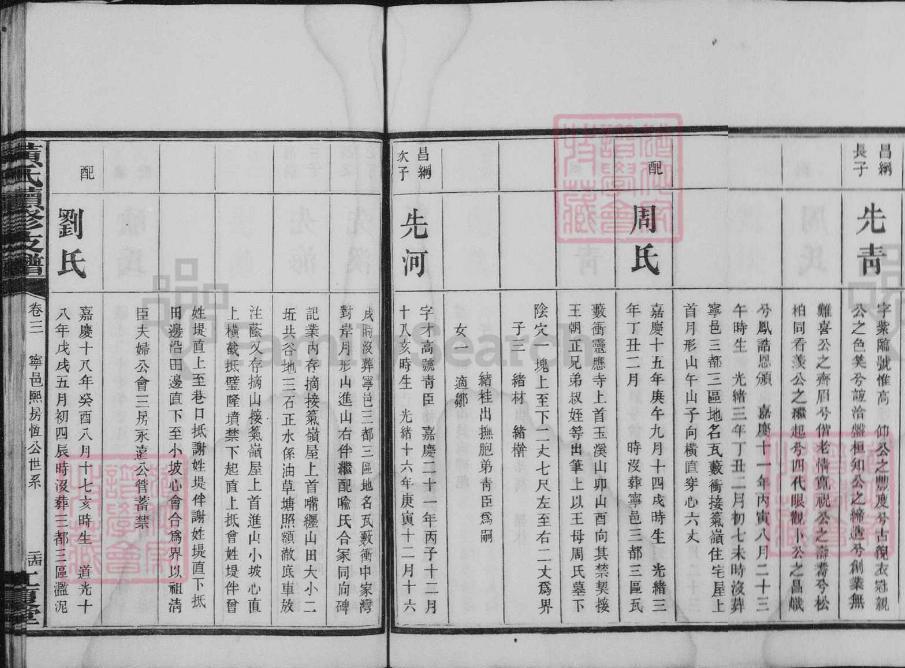 昌綱長子
先青
字葉蔭號惟高 仰公之豐度兮古貌衣冠親
公之色笑兮誼洽盤桓知公之締造兮創業無
難喜公之齊眉兮偕老情寬祝公之壽耆兮松
柏同看羨公之繼起兮四代眼觀小公之昌熾
兮鳳誥恩頒 嘉慶十一年丙寅八月二十三
午時生 光緒三年丁丑二月初七未時沒葬
寧邑三都三區地名瓦藪衝接氣嶺住宅屋上
首月形山午山子向橫直穿心六丈
配
周氏
嘉慶十五年庚午九月十四戌時生 光緒三
年丁丑二月 時沒葬寧邑三都三區瓦
藪衝靈應寺上首玉溪山卯山酉向其禁契接
王朝正兄弟叔姪等出筆上以王母周氏墓下
陰穴 塊上至下二丈七尺左至右二丈為界
子二 緒材 緒楷
緒桂出撫胞弟青臣為嗣
女一 適鄒
昌綱次子
先河
字才高號青臣 嘉慶二十一年丙子十二月
十八亥時生 光緒十六年庚寅十二月十六
戌時沒葬寧邑三都三區地名瓦藪衝中家灣
對岸月形山進山右伴繼配喻氏合冢同向碑
記業內存摘接氣嶺屋上首嘴纙山田大小二
坵共谷地三石正水係油草塘照額澈底車放
注蔭又存摘山接氣嶺屋上首進山小坡心直
上橫截抵壁隆墳禁下起直上抵會姓堤伴曾
姓堤直上至巷口抵謝姓堤伴謝姓堤直下抵
田邊浩田邊直下至小坡心會合為界以祖清
臣夫婦公會三房永遠公管蓄禁
配
劉氏
嘉慶十八年癸酉八月十七亥時生 道光十
八年戊戌五月初四辰時沒葬三都三區灡泥
黃氏續修支譜
卷三 寧邑熙房恆公世系